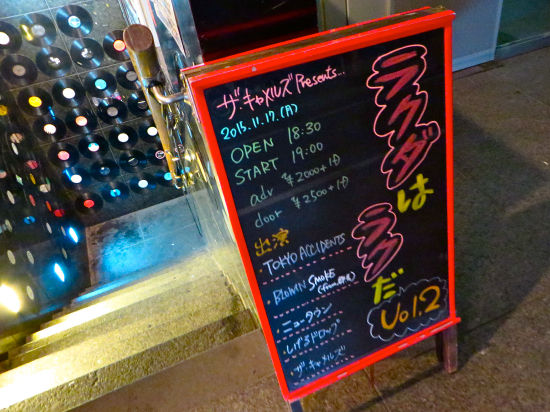 ザ・キャメルズ Presents...
2015.11.17.(月)
OPEN 18:30
START 19:00
adv ¥2000+1D
door ¥2500+1D
出演
・TOKYO ACCIDENTS
・BLOWN SMOKE
・ニュータウン
・しげるドロップ
・ザ・キャメルズ
ラクダは
ラクだ
Vol.2